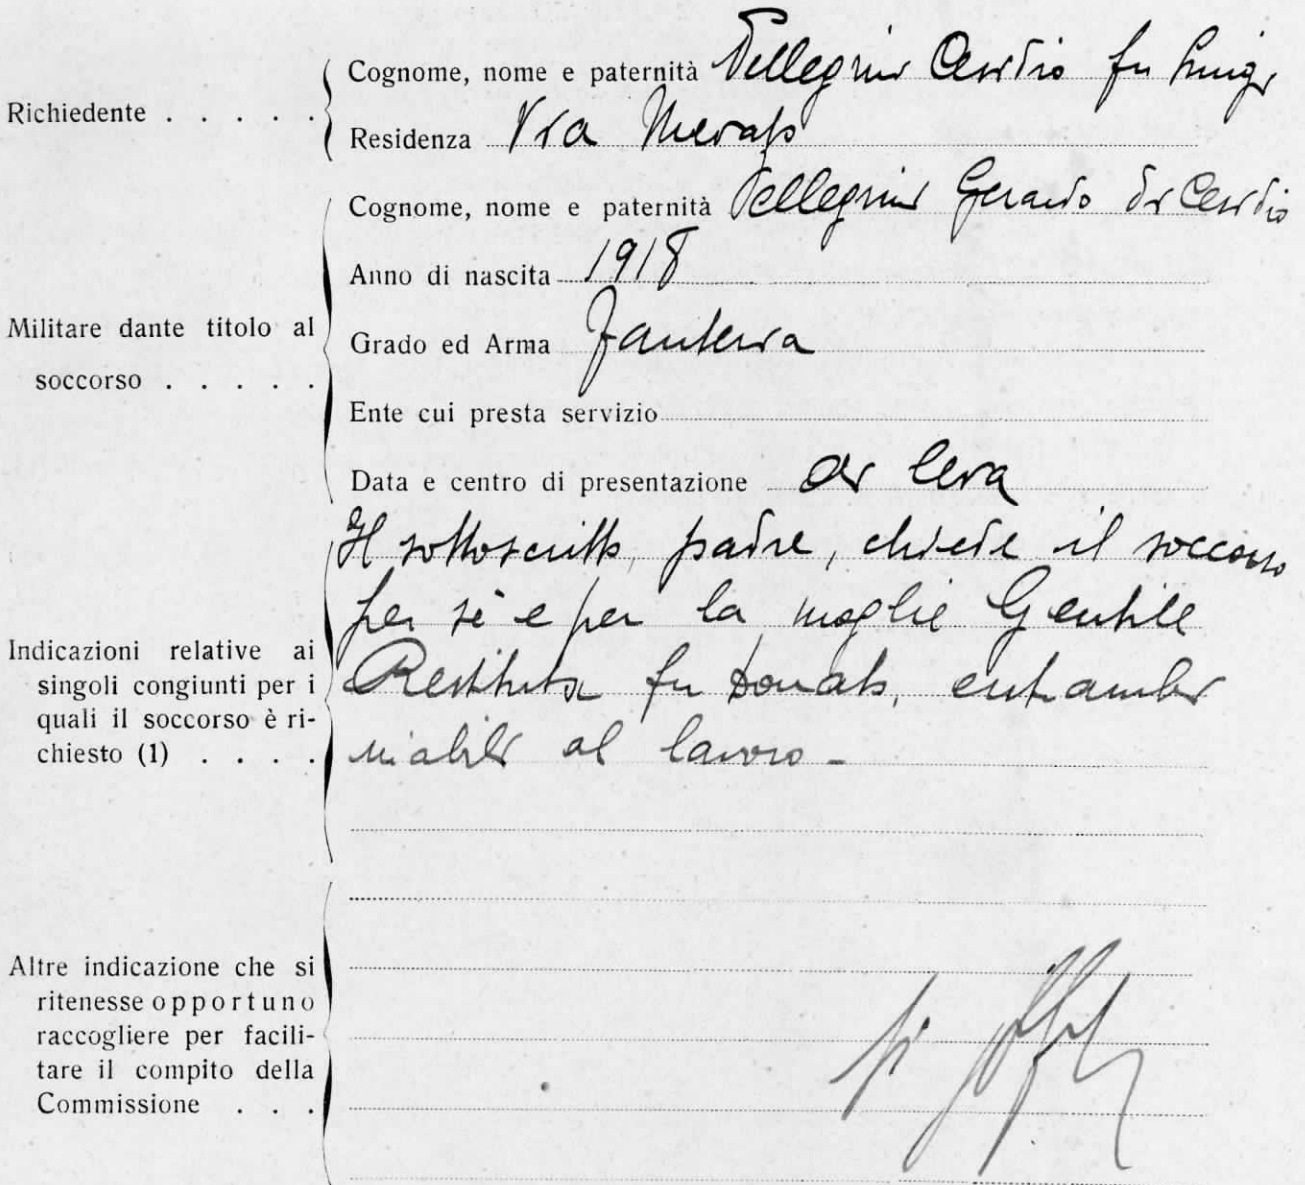 Richiedente . . . . .
Cognome, nome e paternità Pellegrini Cesidio fu Luigi
Residenza Via
Militare dante titolo al
soccorso . . . . .
Cognome, nome e paternità Pellegrini Gerardo di Cesidio
Anno di nascita 1918
Grado ed Arma Fanteria
Ente cui presta servizio
Data e centro di presentazione di leva
Indicazioni relative ai
singoli congiunti per i
quali il soccorso è ri-
chiesto (1) . . . .
Il sottoscritto, padre, chiede il soccorso
per sè e per la moglie Gentile
Restituta fu Donato, entrambi
inabili al lavoro -
Altre indicazione che si
ritenesse opportuno
raccogliere per facili-
tare il compito della
Commissione . . .